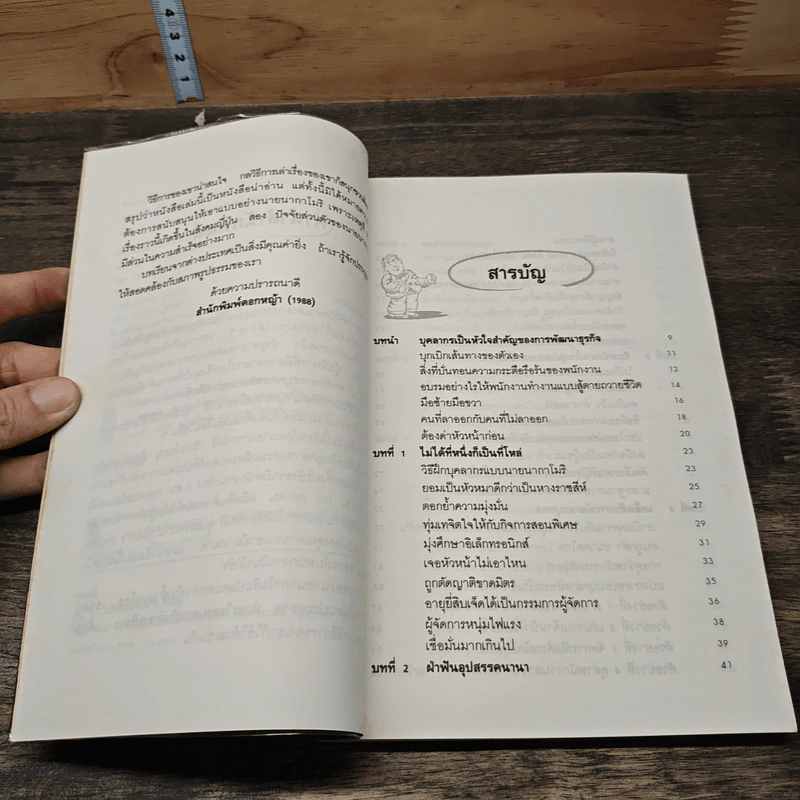 4
3
2
1
วิธีการของเขาน่าสนใจ กลวิธีการเล่าเรื่องของเขาก็สนุกชวน
สรุปว่าหนังสือเล่มนี้เป็นหนังสือน่าอ่าน แต่ทั้งนี้มิได้หมายความ
ต้องการสนับสนุนให้เอาแบบอย่างนายนากาโมริ เพราะเหตุที่
เรื่องราวนี้เกิดขึ้นในสังคมญี่ปุ่น สอง ปัจจัยส่วนตัวของนายนากา
มีส่วนในความสำเร็จอย่างมาก
บทเรียนจากต่างประเทศเป็นสิ่งมีคุณค่ายิ่ง ถ้าเรารู้จัก
ให้สอดคล้องกับสภาพรูปธรรมของเรา
ด้วยความปรารถนาดี
สำนักพิมพ์ดอกหญ้า (1988)
สารบัญ
บทนำ บุคลากรเป็นหัวใจสำคัญของการพัฒนาธุรกิจ 9
บุกเบิกเส้นทางของตัวเอง 11
สิ่งที่บั่นทอนความกระตือรือร้นของพนักงาน 12
อบรมอย่างไรให้พนักงานทำงานแบบสู้ตายถวายชีวิต 14
มือซ้ายมือขวา 16
คนที่ลาออกกับคนที่ไม่ลาออก 18
ต้องด่าหัวหน้าก่อน 20
บทที่ 1 ไม่ได้ที่หนึ่งก็เป็นที่โหล่ 23
วิธีฝึกบุคลากรแบบนายนากาโมริ 23
ยอมเป็นหัวหมาดีกว่าเป็นหางราชสีห์ 25
ตอกย้ำความมุ่งมั่น 27
ทุ่มเทจิตใจให้กับกิจการสอนพิเศษ 29
มุ่งศึกษาอิเล็กทรอนิกส์ 31
เจอหัวหน้าไม่เอาไหน 33
ถูกตัดญาติขาดมิตร 35
อายุยี่สิบเจ็ดได้เป็นกรรมการผู้จัดการ 36
ผู้จัดการหนุ่มไฟแรง 38
เชื่อมั่นมากเกินไป 39
บทที่ 2 ฝ่าฟันอุปสรรคนานา 41